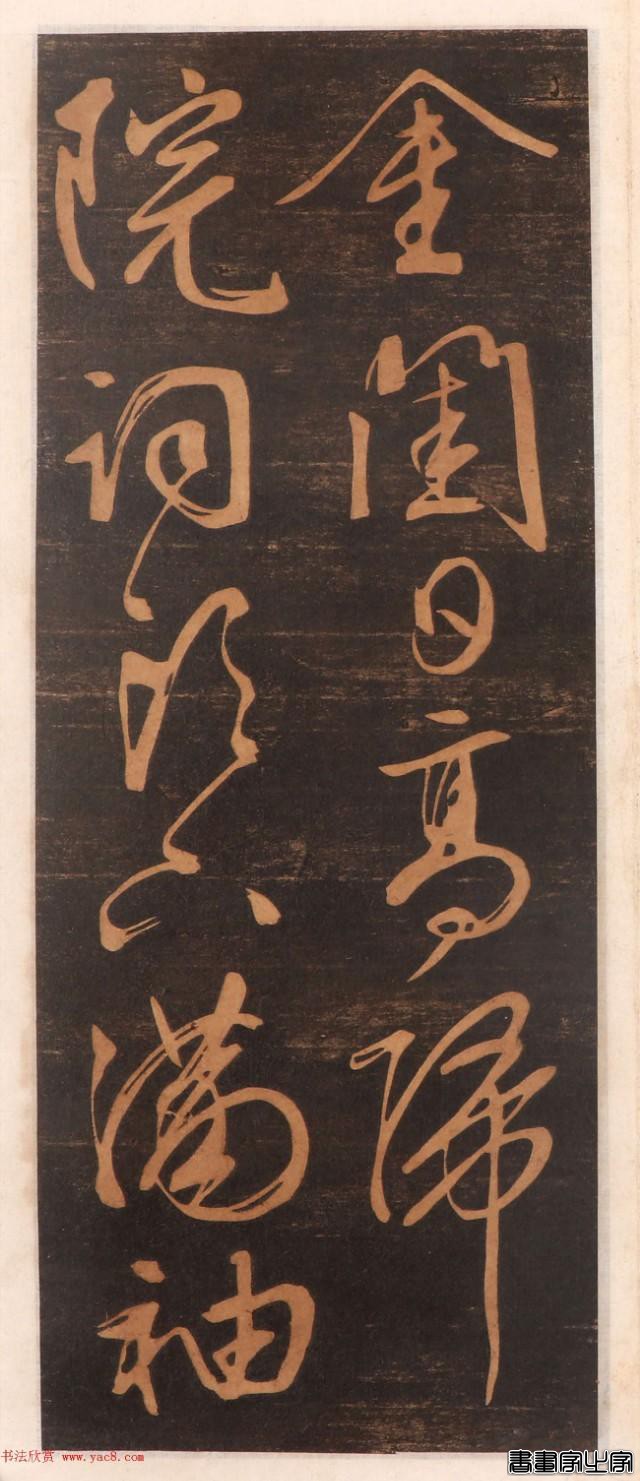 金閨日高歸
院詞頭六滿袖
书法欣赏 www.yac8.com
書畫家之家